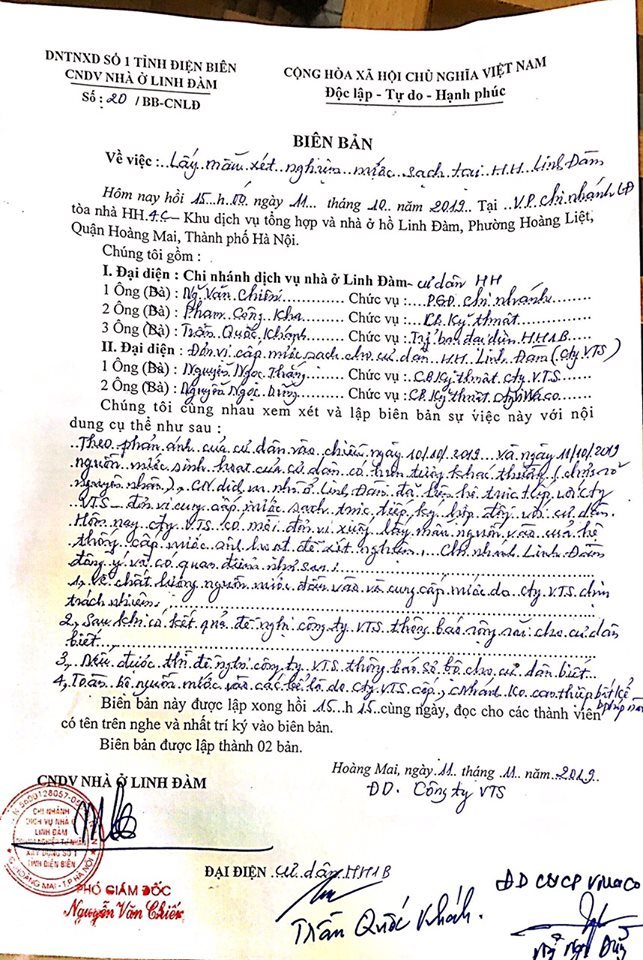 DNTNXD SỐ 1 TỈNH ĐIỆN BIÊN
CNDV NHÀ Ở LINH ĐÀM
Số: 20 / BB-CNLĐ
CỘNG HÒA XÃ HỘI CHỦ NGHĨA VIỆT NAM
Độc lập - Tự do - Hạnh phúc
BIÊN BẢN
Về việc: Lấy mẫu xét nghiệm nước sạch tại HH Linh Đàm
Hôm nay hồi 15 h 00 ngày 11 tháng 10 năm 2019 Tại V.P. chi nhánh LĐ
tòa nhà HH 4C – Khu dịch vụ tổng hợp và nhà ở hồ Linh Đàm, Phường Hoàng Liệt,
Quận Hoàng Mai, Thành phố Hà Nội.
Chúng tôi gồm :
I. Đại diện : Chi nhánh dịch vụ nhà ở Linh Đàm - cư dân HH
1 Ông (Bà) : Ng Văn Chiến Chức vụ : PGĐ chi nhánh
2 Ông (Bà) : Phạm Công Kha Chức vụ : Kỹ thuật
3 Ông (Bà) : Trần Quốc Khánh Chức vụ : ban đại diện HH1B
II. Đại diện : Đơn vị cấp nước sạch cho cư dân HH Linh Đàm (cty VTS)
1 Ông (Bà) : Nguyễn Ngọc Thắng Chức vụ : CB Kỹ thuật cty VTS
2 Ông (Bà) : Nguyễn Ngọc Dũng Chức vụ : CB Kỹ thuật
Chúng tôi cùng nhau xem xét và lập biên bản sự việc này với nội
dung cụ thể như sau :
Theo phản ánh của cư dân vào chiều ngày 10/10/2019 và ngày 11/10/2019
nguồn nước sinh hoạt của cư dân có hiện tượng khác thường (chưa rõ
nguyên nhân), CN dịch vụ nhà ở Linh Đàm đã liên hệ trực tiếp với cty
VTS - đơn vị cung cấp nước sạch trực tiếp ký hợp đồng với cư dân.
Hôm nay cty VTS có mời đơn vị xuống lấy mẫu nguồn vào của hệ
thống cấp nước sinh hoạt để xét nghiệm. Chi nhánh Linh Đàm
đồng ý và có quan điểm như sau:
1, Về chất lượng nguồn nước đầu vào và cung cấp nước do cty VTS chịu
trách nhiệm.
2, Sau khi có kết quả đề nghị công ty VTS thông báo rộng rãi cho cư dân
biết.
3, Nếu được thì đề nghị công ty VTS thông báo sơ bộ cho cư dân biết.
4, Toàn bộ nguồn nước vào các bể là do cty VTS cấp, c.nhánh ko can thiệp bất kể
Biên bản này được lập xong hồi 15 h 15 cùng ngày, đọc cho các thành viên
có tên trên nghe và nhất trí ký vào biên bản.
Biên bản được lập thành 02 bản.
Hoàng Mai, ngày 11 tháng 11 năm 2019
CNDV NHÀ Ở LINH ĐÀM
ĐD. Công ty VTS
CHI NHÁNH
DỊCH VỤ NHÀ Ở
LINH ĐÀM
XÂY DỰNG SỐ 1
TỈNH ĐIỆN BIÊN
Q. HOÀNG MAI - T.P HÀ NỘI
PHÓ GIÁM ĐỐC
Nguyễn Văn Chiến
ĐẠI DIỆN cư dân HH1B
Trần Quốc Khánh.
ĐD CTCP Viwaco
Ng Ngọc Dũng